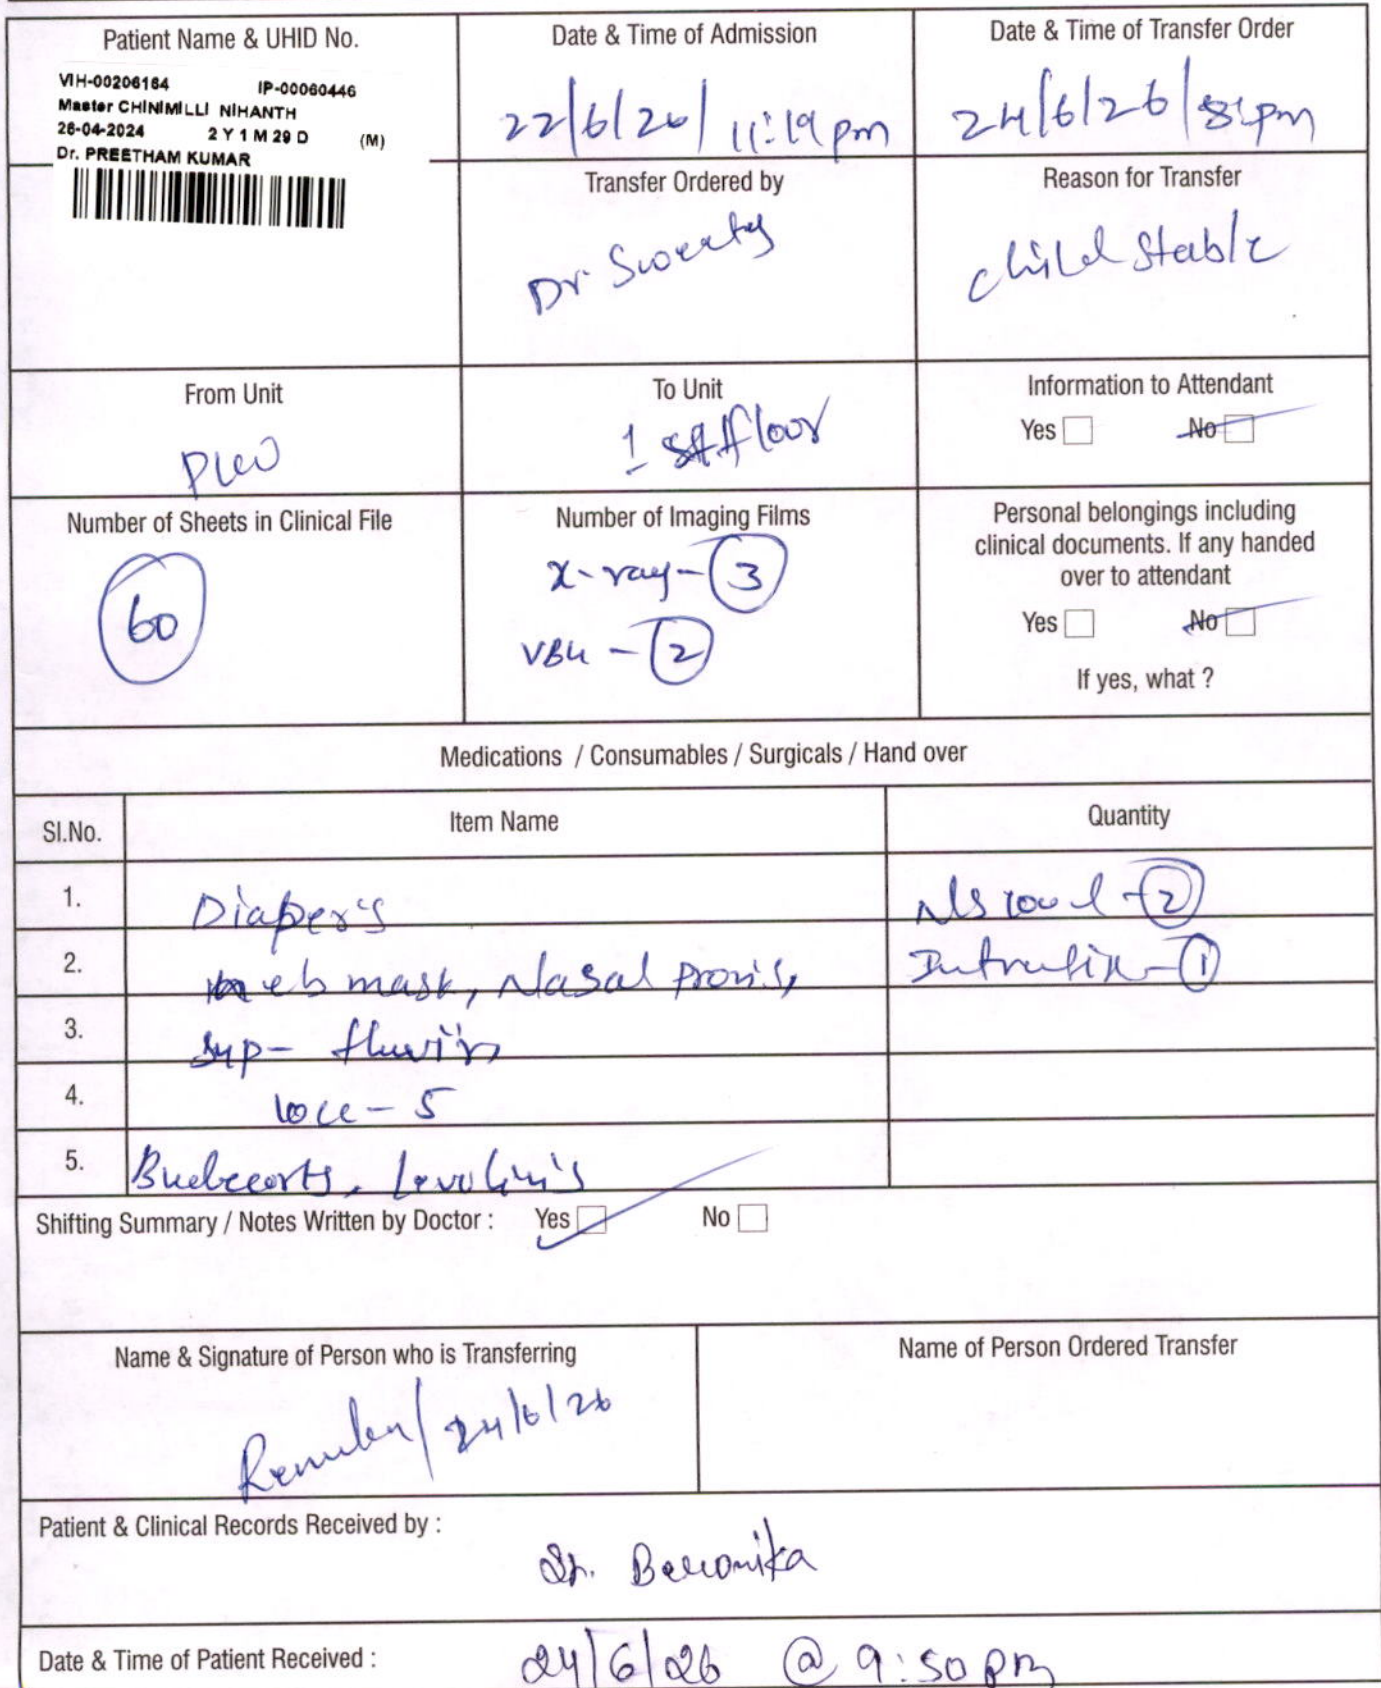 Patient Name & UHID No.
VIH-00206164 IP-00060446
Master CHINIMILLI NIHANTH
28-04-2024 2 Y 1 M 29 D (M)
Dr. PREETHAM KUMAR
Date & Time of Admission
22/6/26/ 11:19 pm
Date & Time of Transfer Order
24/6/26/ pm
Transfer Ordered by
Dr.
Reason for Transfer
child stable
From Unit
To Unit
1 st floor
Information to Attendant
Yes No
Number of Sheets in Clinical File
60
Number of Imaging Films
x-ray - 3
- 2
Personal belongings including
clinical documents. If any handed
over to attendant
Yes No
If yes, what ?
Medications / Consumables / Surgicals / Hand over
Sl.No. Item Name Quantity
1. Diaper's - 2
2. neb mask, Nasal - 1
3. syp-
4. 10cc - 5
5.
Shifting Summary / Notes Written by Doctor : Yes No
Name & Signature of Person who is Transferring
/ 24/6/26
Name of Person Ordered Transfer
Patient & Clinical Records Received by :
Date & Time of Patient Received : 24/6/26 @ 9:50 pm